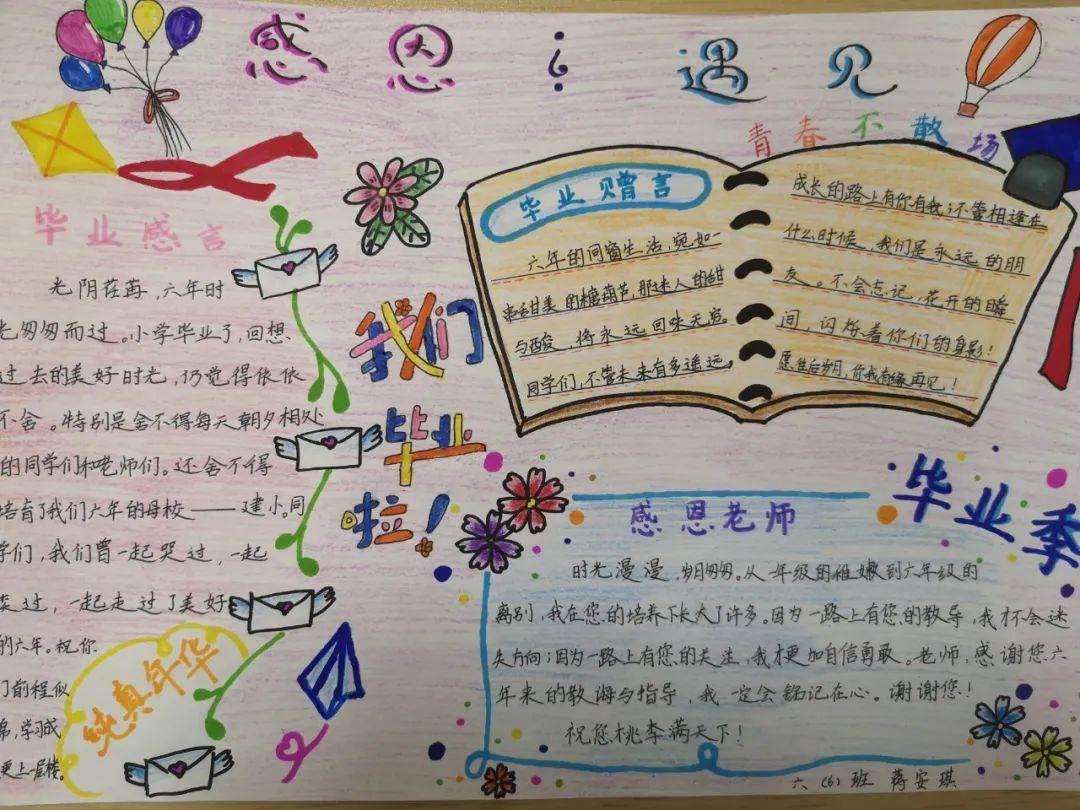 感恩 遇见
青春不散场
毕业感言
光阴荏苒，六年时
光匆匆而过。小学毕业了，回想
过去的美好时光，仍觉得依依
不舍。特别是舍不得每天朝夕相处
的同学们和老师们。还舍不得
培育了我们六年的母校——建小。同
学们，我们曾一起哭过，一起
笑过，一起走过了美好
的六年。祝你
们前程似
锦，学习成
更上一层楼。
纯真年华
我们
毕业
啦！
毕业赠言
六年的同窗生活，宛如一
串甜美的糖葫芦，那迷人的甜
与酸，将永远回味无穷
同学们，不管未来有多遥远，
成长的路上有你有我；不管相逢在
什么时候，我们是永远的朋
友。不会忘记，花开的瞬
间，闪烁着你们的身影！
愿往后岁月，你我有缘再见！
毕业季
感恩老师
时光漫漫，岁月匆匆。从一年级的稚嫩到六年级的
离别，我在您的培养下长大了许多。因为一路上有您的教导，我才会迷
失方向；因为一路上有您的关注，我才更加自信勇敢。老师，感谢您六
年来的教诲与指导，我一定会铭记在心。谢谢您！
祝您桃李满天下！
六（6）班 蒋安琪